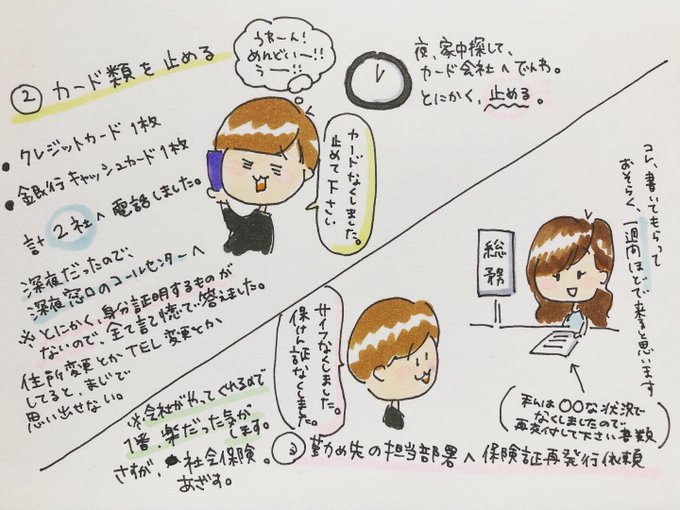 ② カード類を止める
うわーん!
めんどいー!!
うー!!
夜、家中探して、
カード会社へでんわ。
とにかく、止める。
• クレジットカード 1枚
• 銀行キャッシュカード 1枚
計2社へ電話しました。
深夜だったので、
深夜窓口のコールセンターへ
※とにかく、身分証明するものが
ないので、全て記憶で答えました。
住所変更とかTEL変更とか
してると、まじで
思い出せない。
カードなくしました。
止めて下さい
③ 勤め先の担当部署へ保険証再発行依頼
サイフなくしました。
保けん証なくしました。
※会社がやってくれるので
1番、楽だった気が
します。
さすが、社会保険。
あざす。
総務
コレ、書いてもらって
おそらく、1週間ほどで来ると思います
私は〇〇な状況で
なくしましたので
再交付して下さい書類